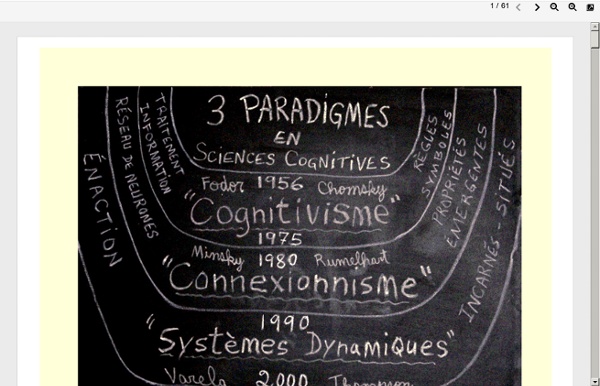 1 / 61
3 PARADIGMES
EN
SCIENCES COGNITIVES
TRAITEMENT
INFORMATION
RÈGLES
SYMBOLES
Fodor 1956 Chomsky
"Cognitivisme"
1975
RÉSEAU DE NEURONES
PROPRIÉTÉS
ÉMERGENTES
Minsky 1980 Rumelhart
"Connexionnisme"
1990
ÉNACTION
INCARNÉS - SITUÉS
"Systèmes Dynamiques"
Varela 2,000 Thompson